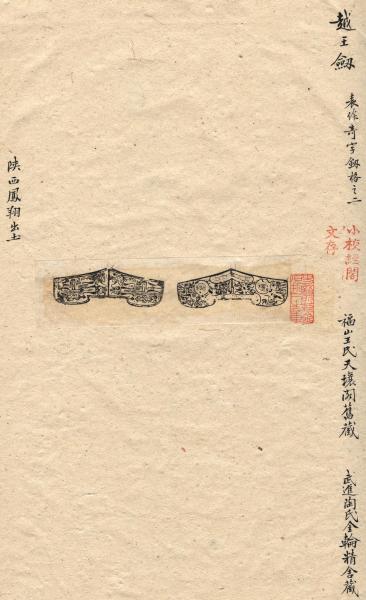 越王劔
表作奇字劔格之二
小校經閣
文存
福山王氏天壤閣舊藏
武進陶氏金輪精舍藏
陝西鳳翔出土